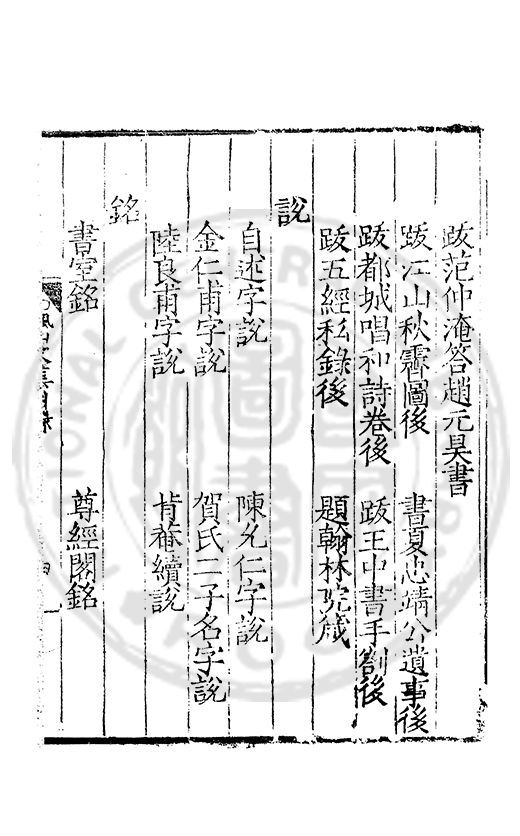 跋范仲淹答趙元昊書
跋江山秋霽圖後　書夏忠靖公遺事後
跋都城唱和詩卷後　跋王中書手劄後
跋五經私錄後　題翰林院箴
說
自述字說　陳允仁字說
金仁甫字說　賀氏二子名字說
陸良甫字說　肯菴續說
銘
書室銘　尊經閣銘
文集目錄